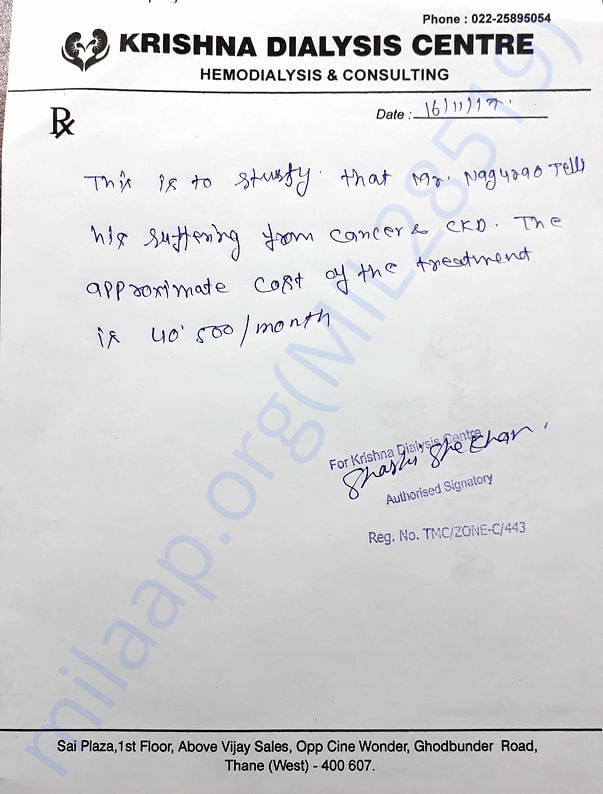 Phone : 022-25895054
KRISHNA DIALYSIS CENTRE
HEMODIALYSIS & CONSULTING
Rx
Date : 16/11/17.
This is to stusfy. that Mr. Nagurao Tell
his suffering from cancer & CKD. The
approximate cost of the treatment
is 40'500/month
For Krishna Dialysis Centre
Shashi Shekhar
Authorised Signatory
Reg. No. TMC/ZONE-C/443
Sai Plaza,1st Floor, Above Vijay Sales, Opp Cine Wonder, Ghodbunder Road,
Thane (West) - 400 607.
milaap.org(MIL28519)